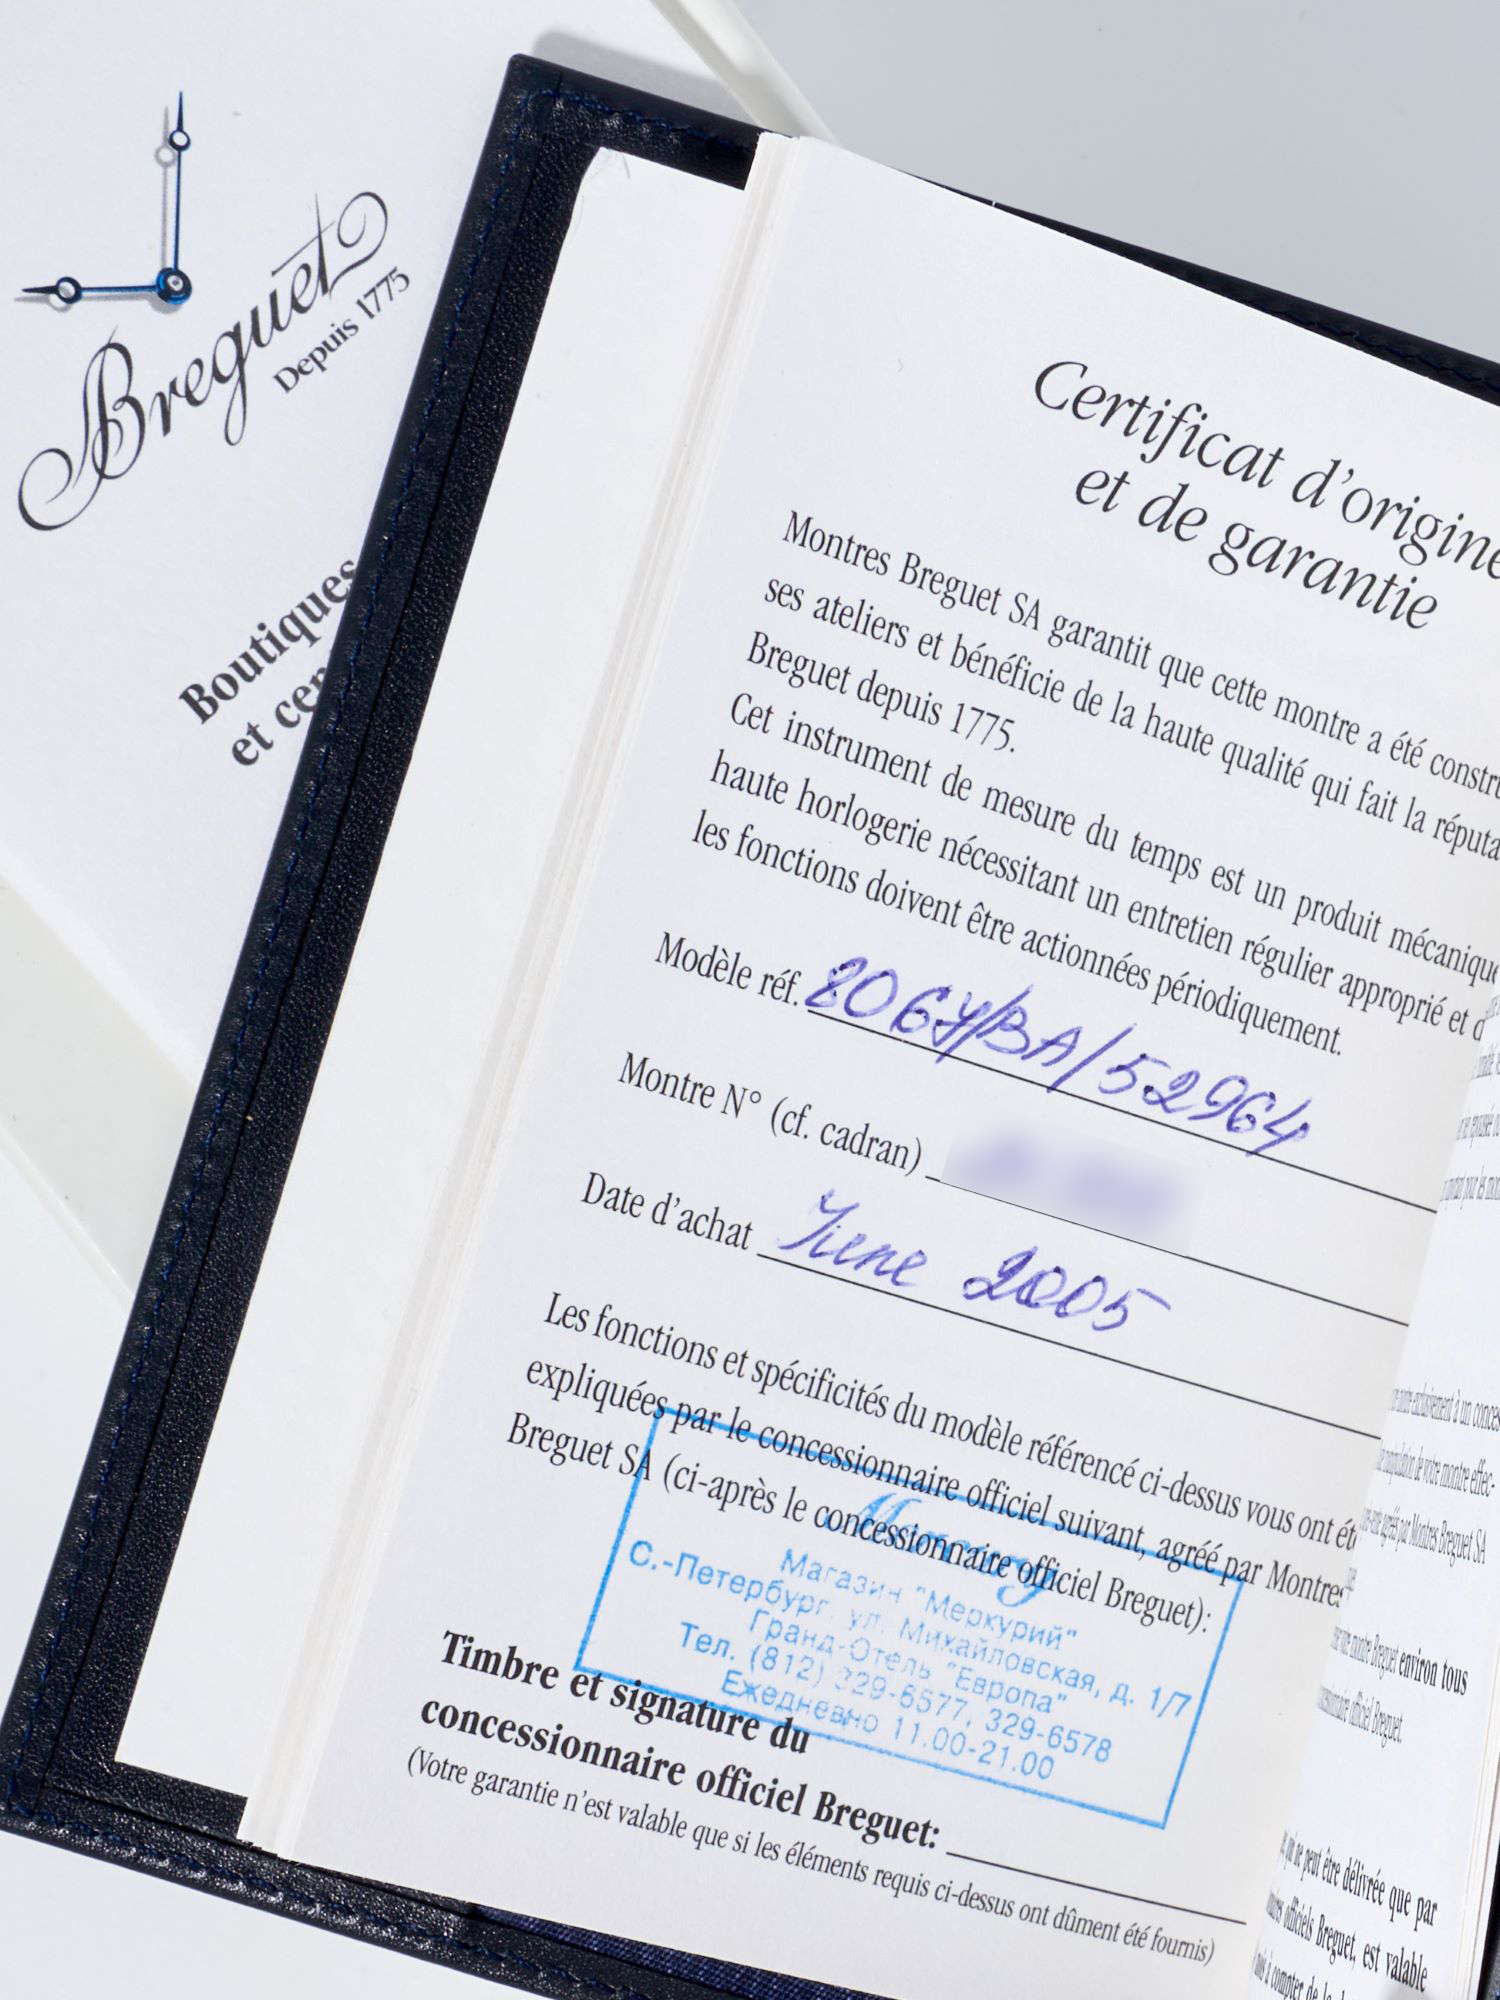 Breguet
Depuis 1775
Boutiques
et
Certificat d'origine
et de garantie
Montres Breguet SA garantit que cette montre a été
ses ateliers et bénéficie de la haute qualité qui fait la
Breguet depuis 1775.
Cet instrument de mesure du temps est un produit
haute horlogerie nécessitant un entretien régulier approprié et
les fonctions doivent être actionnées périodiquement.
Modèle réf. 8067/BA/52964
Montre N° (cf. cadran)
Date d'achat June 2005
Les fonctions et spécificités du modèle référencé ci-dessus vous ont
expliquées par le concessionnaire officiel suivant, agréé par Montres
Breguet SA (ci-après le concessionnaire officiel Breguet):
Mercury
Магазин "Меркурий"
С.-Петербург, ул. Михайловская, д. 1/7
Гранд-Отель "Европа"
Тел. (812) 329-6577, 329-6578
Ежедневно 11.00-21.00
Timbre et signature du
concessionnaire officiel Breguet:
(Votre garantie n'est valable que si les éléments requis ci-dessus ont dûment été fournis)
exclusivement à un
de votre montre effec-
agréés par Montres Breguet SA
montre Breguet environ tous
officiel Breguet.
ne peut être délivrée que par
officiels Breguet, est valable
à compter de la